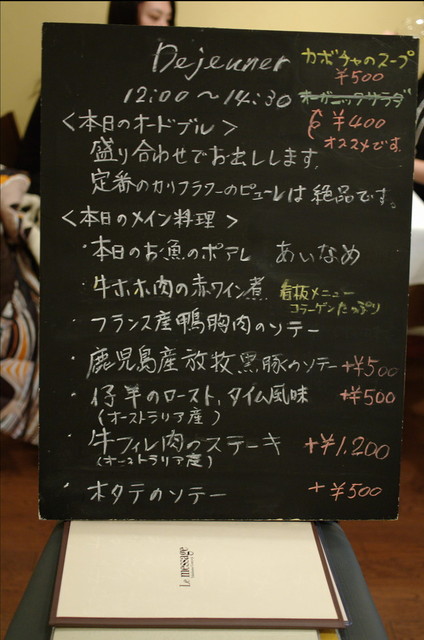 Dejeuner
カボチャのスープ
¥500
12:00～14:30
オーガニックサラダ
¥400
オススメです。
＜本日のオードブル＞
盛り合わせでお出しします。
定番のカリフラワーのピューレは絶品です。
＜本日のメイン料理＞
・本日のお魚のポアレ あいなめ
・牛ホホ肉の赤ワイン煮 看板メニュー
コラーゲンたっぷり
・フランス産鴨胸肉のソテー
・鹿児島産放牧黒豚のソテー +¥500
・仔羊のロースト、タイム風味 +¥500
(オーストラリア産)
・牛フィレ肉のステーキ +¥1,200
(オーストラリア産)
・ホタテのソテー +¥500
Le message